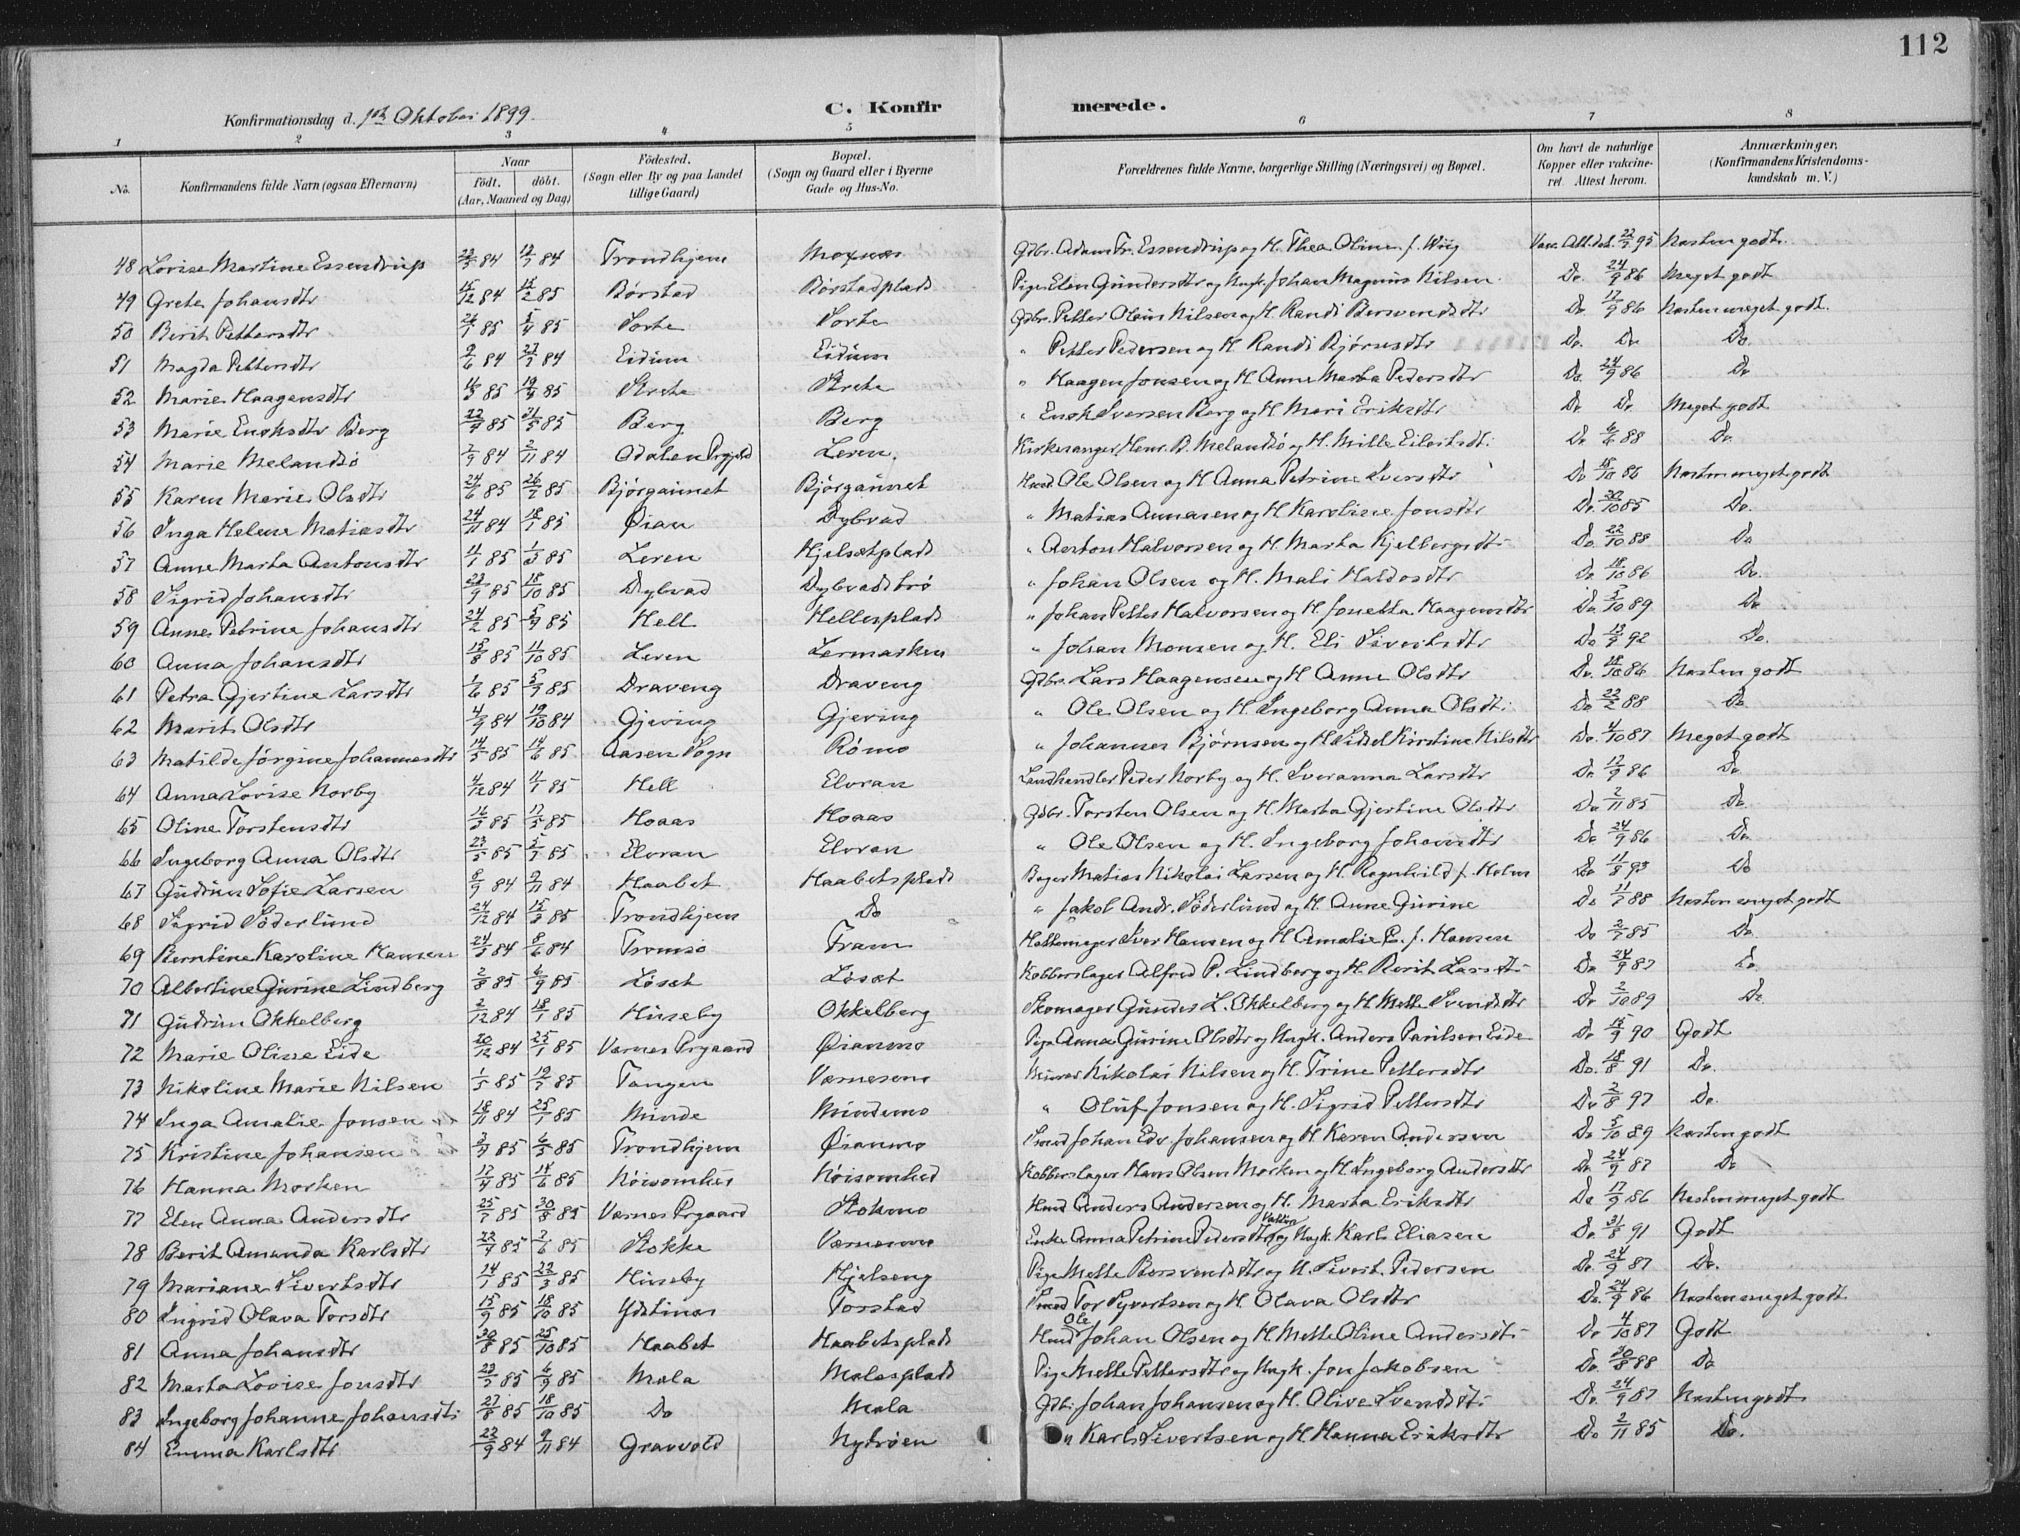 112
Konfirmationsdag d. 1ste Oktober 1899. C. Konfirmerede.
1 2 3 4 5 6 7 8
No. Konfirmandens fulde Navn (ogsaa Efternavn) Naar födt. döbt. (Aar, Maaned og Dag) Födested. (Sogn eller By og paa Landet tillige Gaard) Bopæl. (Sogn og Gaard eller i Byerne Gade og Hus-No. Forældrenes fulde Navne, borgerlige Stilling (Næringsvei) og Bopæl. Om havt de naturlige Kopper eller vakcineret. Attest herom. Anmærkninger. (Konfirmandens Kristendomskundskab m. V.)
48 Lovise Martine Essendrup 84 84 Trondhjem Moxnæs Gdbr. Adam Fr. Essendrup og H. Thea Oline f. Wiig 95 Næsten godt.
49 Grete Johansdtr 15/12 84 85 Børstad Børstadplads Pige Elen Gundersdtr og Ungk. Johan Magnus Nilsen Do. 24/9 86 Meget godt
50 Berit Pettersdtr 85 5/4 85 Sorte Sorte Gdbr. Petter Olaus Nilsen og H. Randi Bersvendsdtr Do 17/9 86 Næsten meget godt.
51 Magda Pettersdtr 9/6 84 27/7 84 Eidum Eidum " Petter Pedersen og H. Randi Bjørnsdtr Do. Do Do.
52 Marie Haagensdtr 85 85 Strete Strete " Haagen Jonsen og H. Anne Marta Pedersdtr Do. 24/9 86 Do
53 Marie Enoksdtr Berg 85 21/5 85 Berg Berg " Enok Iversen Berg og H. Mari Eriksdtr Do Do. Meget godt
54 Marie Melandsø 84 2/11 84 Odalen Prgjeld Leren. Kirkesanger Henr. B. Melandsø og H. Mille Eilertsdtr. Do 6/6 88 Do.
55 Karen Marie Olsdtr 24/6 85 26/7 85 Bjørgaunet Bjørgaunet Hmd Ole Olsen og H Anna Petrine Iversdtr Do 18/10 86 Næsten meget godt
56 Inga Helene Matiasdtr 24/11 84 18/1 85 Øian Dybvad " Matias Annasen og H Karoline Jonsdtr Do. 20/10 85 Do.
57 Anne Marta Antonsdtr 85 1/3 85 Leren Hjelsetplads " Anton Halvorsen og H. Marta Kjelbergsdtr Do. 22/10 88 Do
58 Sigrid Johansdtr 85 18/10 85 Dybvad Dybvadstrø " Johan Olsen og H. Mali Haldosdtr Do. 18/10 86 Do.
59 Anne Petrine Johansdtr 24/2 85 85 Hell Hellesplads " Johan Petter Halvorsen og H Jonetta Haagensdtr Do. 89 Do
60 Anna Johansdtr 15/8 85 11/10 85 Leren Lermarken " Johan Monsen og H. Eli Sivertsdtr Do 92 Do.
61 Petra Gjertine Larsdtr 1/6 85 5/9 85 Draveng Draveng Gdbr. Lars Haagensen og H Anne Olsdtr Do. 18/10 86 Næsten godt
62 Marit Olsdtr 4/9 84 19/10 84 Gjeving Gjeving " Ole Olsen og H. Ingeborg Anna Olsdtr. Do 22/2 88 Do
63 Matilde Jørgine Johannesdtr 14/5 85 14/6 85 Aasen Sogn Rømo " Johannes Bjørnsen og H Sidsel Kirstine Nilsdtr Do. 4/10 87 Meget godt
64 Anna Lovise Norby 4/12 84 85 Hell Elvran Landhandler Peder Norby og H. Iveranna Larsdtr Do. 17/9 86 Do
65 Oline Torstensdtr 85 17/5 85 Hoaas Hoaas Gdbr. Torsten Olsen og H Marta Gjertine Olsdtr Do 2/11 85 Do
66 Ingeborg Anna Olsdtr 85 85 Elvran Elvran " Ole Olsen og H. Ingeborg Johansdtr Do 24/9 86 Do
67 Gudrun Sofie Larsen 8/9 84 9/11 84 Haabet Haabetsplads Bager Matias Nikolai Larsen og H Ragnhild f. Holm Do 93 Do
68 Sigrid Söderlund 24/12 84 85 Trondhjem Do " Jakob Andr. Söderlund og H. Anne Gurine Do 88 Næsten meget godt
69 Berntine Karoline Hansen 84 8/6 84 Tromsø Fram Hattemager Iver Hansen og H Amalie f. Hansen Do 85 Do.
70 Albertine Gurine Lindberg 2/8 85 6/9 85 Löset Löset Kobberslager Alfred P. Lindberg og H. Berit Larsdtr Do 24/9 87 Do.
71 Gudrun Okkelberg 2/12 84 18/1 85 Huseby Okkelberg Skomager Gunder L. Okkelberg og H Mette Svendsdtr Do 2/10 89 Do.
72 Marie Olise Eide 20/12 84 25/1 85 Værnes Prgaard Øianmo Pige Anna Gurine Olsdtr og Ungk. Anders Eide Do. 15/9 90 Godt
73 Nikoline Marie Nilsen 85 19/7 85 Tangen Værnesmo Nikolai Nilsen og H. Trine Pettersdtr Do. 18/8 91 Do.
74 Inga Amalie Jonsen 18/11 84 25/1 85 Minde Mindemo " Oluf Jonsen og H. Sigrid Pettersdtr Do 2/8 97 Do.
75 Kristine Johansen 85 85 Trondhjem Øianmo Smed Johan Edv Johansen og H Karen Andersen Do 89 Næsten godt
76 Hanna Morken 85 14/6 85 Nöisomhed Nöisomhed Kobberslager Hans Olsen Morken og H. Ingeborg Andersdtr Do. 24/9 87 Do
77 Elen Anna Andersdtr 25/7 85 30/8 85 Værnes Prgaard Stokmo Hmd Anders Andersen og H. Marta Eriksdtr Do 17/9 86 Næsten meget godt
78 Berit Amanda Karlsdtr 85 7/6 85 Stokke Værnesmo Enke Anna Petrine Pedersdtr og Ungk. Karl Eliasen Do. 31/8 91 Godt
79 Mariane Sivertsdtr 14/1 85 22/3 85 Huseby Hjelseng Pige Mette Bersvendsdtr og U. Sivert Pedersen Do. 24/9 87 Do.
80 Ingrid Olava Torsdtr 15/9 85 18/10 85 Ydstines Torstad Smed Tor Syvertsen og H. Olava Olsdtr Do. 24/9 86 Næsten meget godt
81 Anna Johansdtr 30/8 85 25/10 85 Haabet Haabetsplads Hmd Ole Johan Olsen og H. Mette Oline Andersdtr Do 4/10 87 Godt
82 Marta Lovise Jonsdtr 85 6/9 85 Mæla Mælesplads Pige Mette Pettersdtr og Ungk. Jon Jakobsen Do. 30/8 88 Do
83 Ingeborg Johanne Johansdtr. 27/8 85 18/10 85 Do Mæla Gdbr. Johan Johansen og H. Olive Svendsdtr. Do. 24/9 87 Næsten godt
84 Emma Karlsdtr 84 9/11 84 Grauvold Nytrøen " Karl Sivertsen og H Hanna Eriksdtr Do 2/11 85 Do.